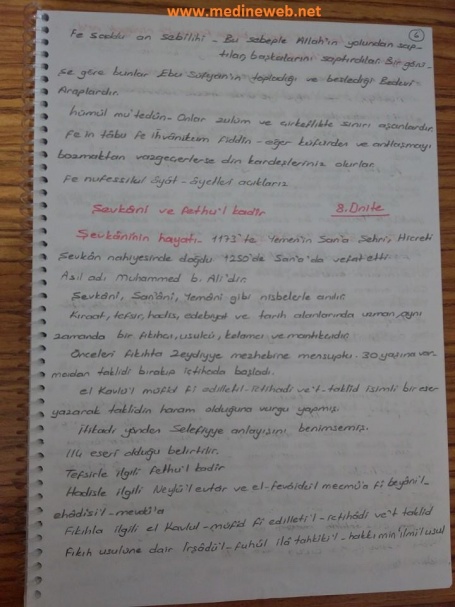 www.medineweb.net
6
Fe saddu an sebilihi - Bu sebeple Allah'ın yolundan sap-
tılar, başkalarını saptırdılar. Bir görü-
şe göre bunlar Ebu Sufyan'ın topladığı ve beslediği Bedevi
Araplardır.
hümül mu'tedün - Onlar zulüm ve çirkeflikte sınırı aşanlardır.
Fe in tâbu fe ihvânikum fiddin - eğer küfürden ve antlaşmayı
bozmaktan vazgeçerlerse din kardeşleriniz olurlar.
Fe nufessılul âyât - âyetleri açıklarız
Şevkâni ve Fethu'l kadir 8. Ünite
Şevkâninin hayatı - 1173'te Yemen'in San'a Şehri, Hicreti
Şevkân nahiyesinde doğdu 1250'de San'a'da vefat etti
Asıl adı Muhammed b. Ali'dir.
Şevkânî, San'ânî, Yemânî gibi nisbelerle anılır.
Kıraat, tefsir, hadis, edebiyat ve tarih alanlarında uzman, aynı
zamanda bir fıkıhcı, usulcü, kelamcı ve mantıkcıdır.
Önceleri fıkıhta Zeydiyye mezhebine mensuptu. 30 yaşına var-
madan taklidi bırakıp ictihada başladı.
el Kavlu'l müfid fi edilletil-ictihadi ve't-taklid isimli bir eser
yazarak taklidin haram olduğuna vurgu yapmış.
İtikadi yönden Selefiyye anlayışını benimsemiş.
114 eseri olduğu belirtilir.
Tefsirle ilgili Fethu'l kadir
Hadisle ilgili Neylü'l evtar ve el-fevâidü'l mecmu'a fi beyâni'l-
ehâdisi'l-mevdû'a
Fıkıhla ilgili el Kavlul-müfid fi edilleti'l-ictihâdi ve't taklid
Fıkıh usulüne dair İrşâdü'l-fuhûl ilâ tahkiki'l-hakkı min'ilmi'l usul